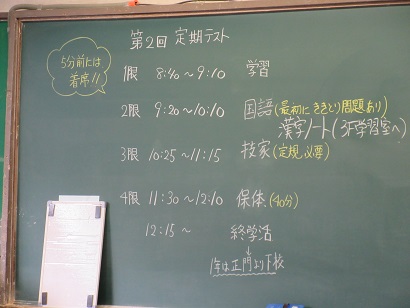 第2回 定期テスト
5分前には
着席!!
1限 8:40～9:10 学習
2限 9:20～10:10 国語(最初にききとり問題あり)
漢字ノート(3F学習室へ)
3限 10:25～11:15 技家(定規必要)
4限 11:30～12:10 保体(40分)
12:15～ 終学活
↓
1年は正門より下校